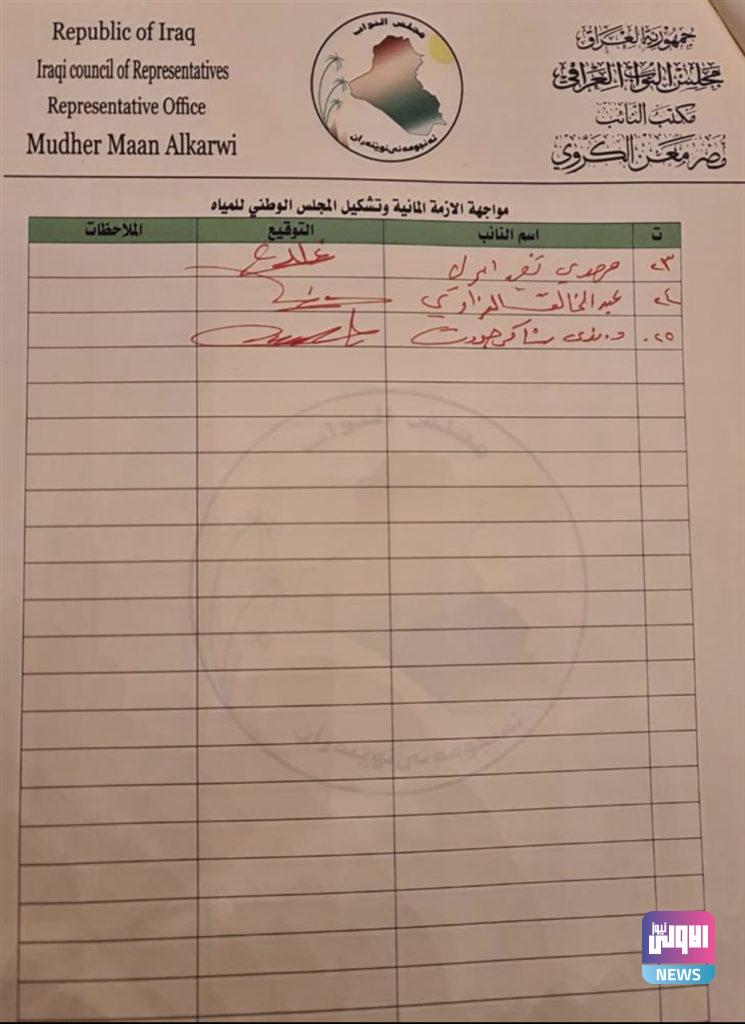 Republic of Iraq
Iraqi council of Representatives
Representative Office
Mudher Maan Alkarwi
مجلس النواب
ئەنجومەنی نوێنەران
جمهورية العراق
مجلس النواب العراقي
مكتب النائب
مضر معن الكروي
مواجهة الازمة المائية وتشكيل المجلس الوطني للمياه
ت اسم النائب التوقيع الملاحظات
٢٣ مهدي تقي
٢٤ عبد الخالق العزاوي
٢٥. شاكر جودت
الاولى نيوز
NEWS